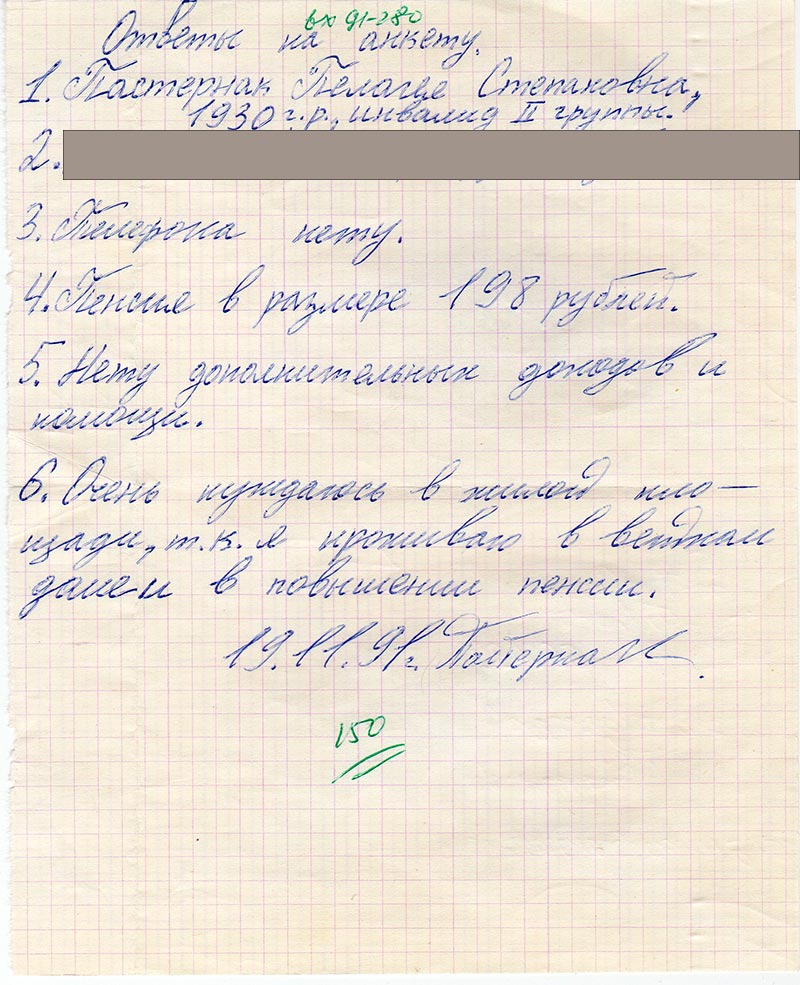 вх 91-280
Ответы на анкету.
1. Пастернак Пелагея Степановна,
1930 г.р., инвалид II группы.
2.
3. Телефона нету.
4. Пенсие в размере 198 рублей.
5. Нету дополнительных доходов и
помощи.
6. Очень нуждаюсь в жилой пло-
щади, т.к. я проживаю в ветхом
доме и в повышении пенсии.
19.11.91г. Пастернак
150